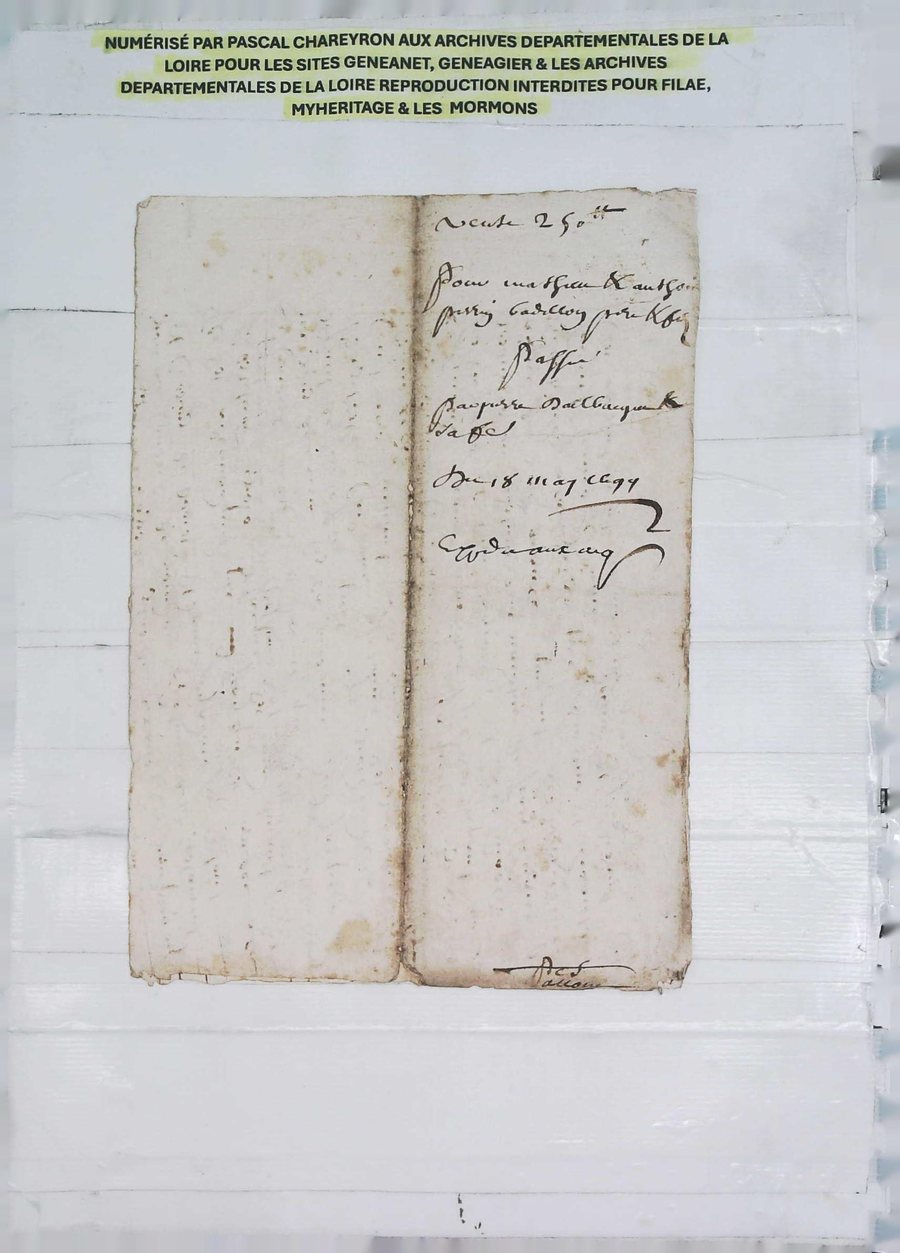 NUMÉRISÉ PAR PASCAL CHAREYRON AUX ARCHIVES DEPARTEMENTALES DE LA
LOIRE POUR LES SITES GENEANET, GENEAGIER & LES ARCHIVES
DEPARTEMENTALES DE LA LOIRE REPRODUCTION INTERDITES POUR FILAE,
MYHERITAGE & LES MORMONS
Vente 250 tt
Pour mathieu & anthoi
perrin père & fis
Passée
Par pierre &
sa fe
Du 18 may